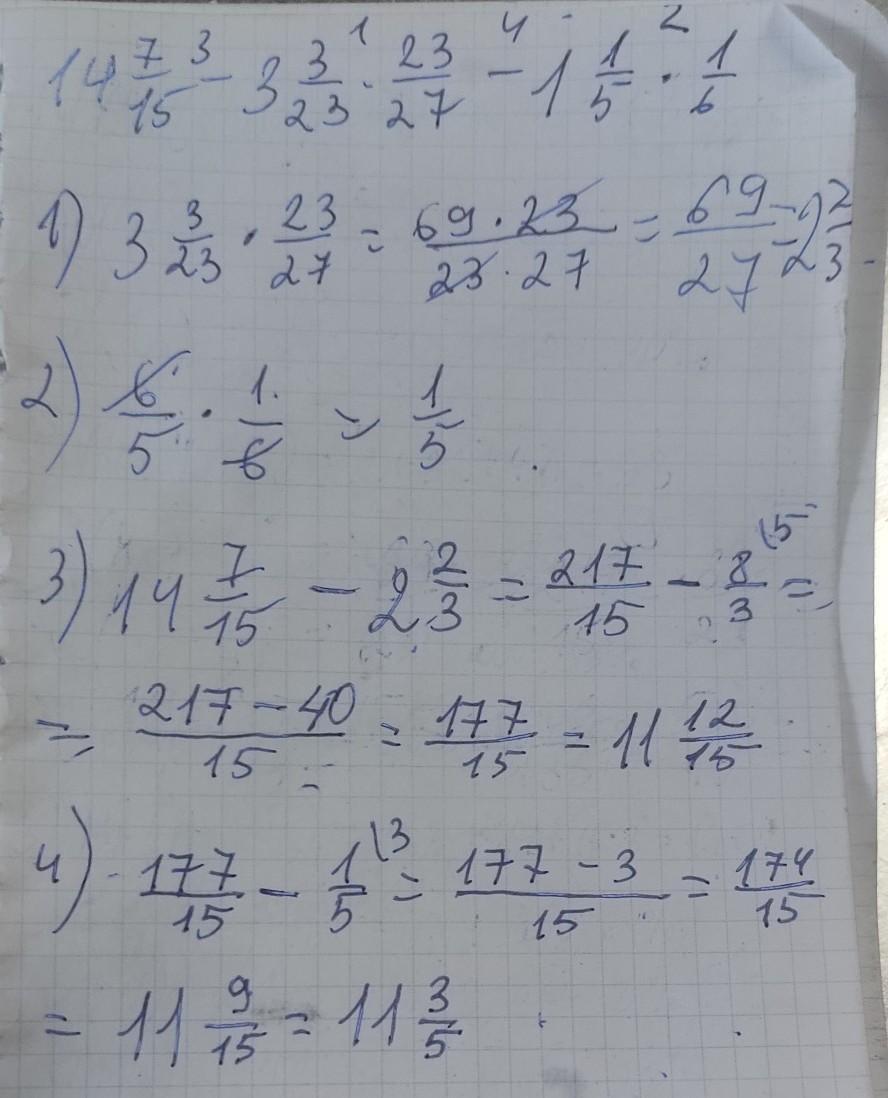 14 7/15 - 3 3/23 · 23/27 - 1 1/5 · 1/6
1) 3 3/23 · 23/27 = 69 · 23/23 · 27 = 69/27 = 2 2/3
2) 6/5 · 1/6 = 1/5
3) 14 7/15 - 2 2/3 = 217/15 - 8/3 \5 =
= 217 - 40/15 = 177/15 = 11 12/15
4) 177/15 - 1/5 \3 = 177 - 3/15 = 174/15
= 11 9/15 = 11 3/5